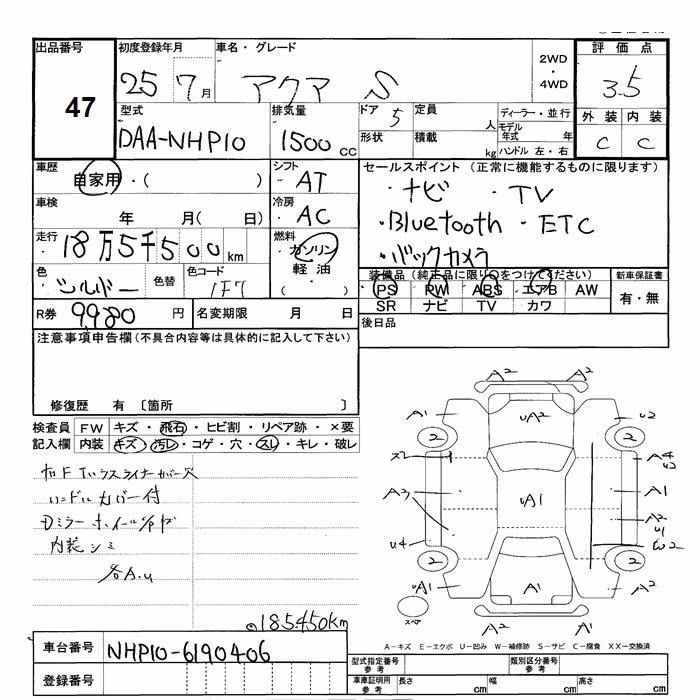 出品番号
47
初度登録年月
25 7月
車名・グレード
アクア S
2WD
・
4WD
評価点
3.5
外装 内装
C C
型式
DAA-NHP10
排気量
1500 cc
ドア 5
形状
定員 人
積載 kg
ディーラー・並行
モデル年式 年
ハンドル 左・右
車歴
自家用・( )
シフト
AT
車検
年 月( 日)
冷房
AC
走行
18万5千500km
燃料
ガソリン
軽油
( )
色
シルバー
色替
色コード
1F7
R券 9980円
名変期限 月 日
セールスポイント (正常に機能するものに限ります)
・ナビ ・TV
・Bluetooth ・ETC
・バックカメラ
装備品(純正品に限り○をつけてください)
PS PW ABS エアB AW
SR ナビ TV カワ
新車保証書
有・無
後日品
注意事項申告欄(不具合内容等は具体的に記入して下さい)
修復歴 有 〔箇所 〕
検査員記入欄
FW キズ・飛石・ヒビ割・リペア跡・×要
内装 キズ・汚レ・コゲ・穴・スレ・キレ・破レ
ハンドルカバー付
Dミラー ホイール
内装シミ
各A.u
185450km
車台番号
NHP10-6190406
登録番号
A2
A2
A1
uA2
u2
2
2
A4
u2
A3
uA1
A1
A2
u1
u4
W2
2
2
uA1
A1
A2
スペア
A2
A1
A-キズ E-エクボ U-凹み W-補修跡 S-サビ C-腐食 XX-交換済
型式指定番号 参考
類別区分番号 参考
車庫証明用 参考
長さ cm
幅 cm
高さ cm